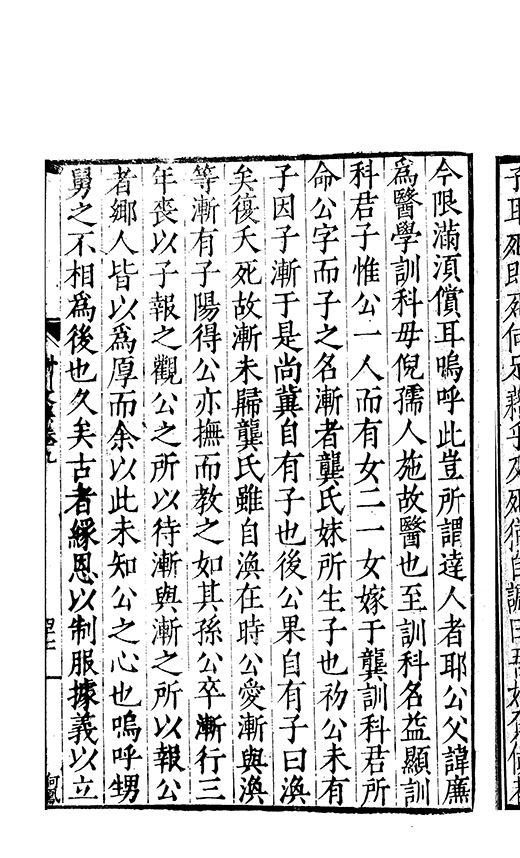 今限滿湏償耳嗚呼此豈所謂達人者耶公父諱廉
爲醫學訓科母倪孺人施故醫也至訓科名益顯訓
科君子惟公一人而有女二一女嫁于龔訓科君所
命公字而子之名漸者龔氏妹所生子也初公未有
子因子漸于是尚冀自有子也後公果自有子曰渙
矣復夭死故漸未歸龔氏雖自渙在時公愛漸與渙
等漸有子陽得公亦撫而教之如其孫公卒漸行三
年喪以子報之觀公之所以待漸與漸之所以報公
者鄉人皆以爲厚而余以此未知公之心也嗚呼甥
舅之不相爲後也久矣古者緣恩以制服據義以立